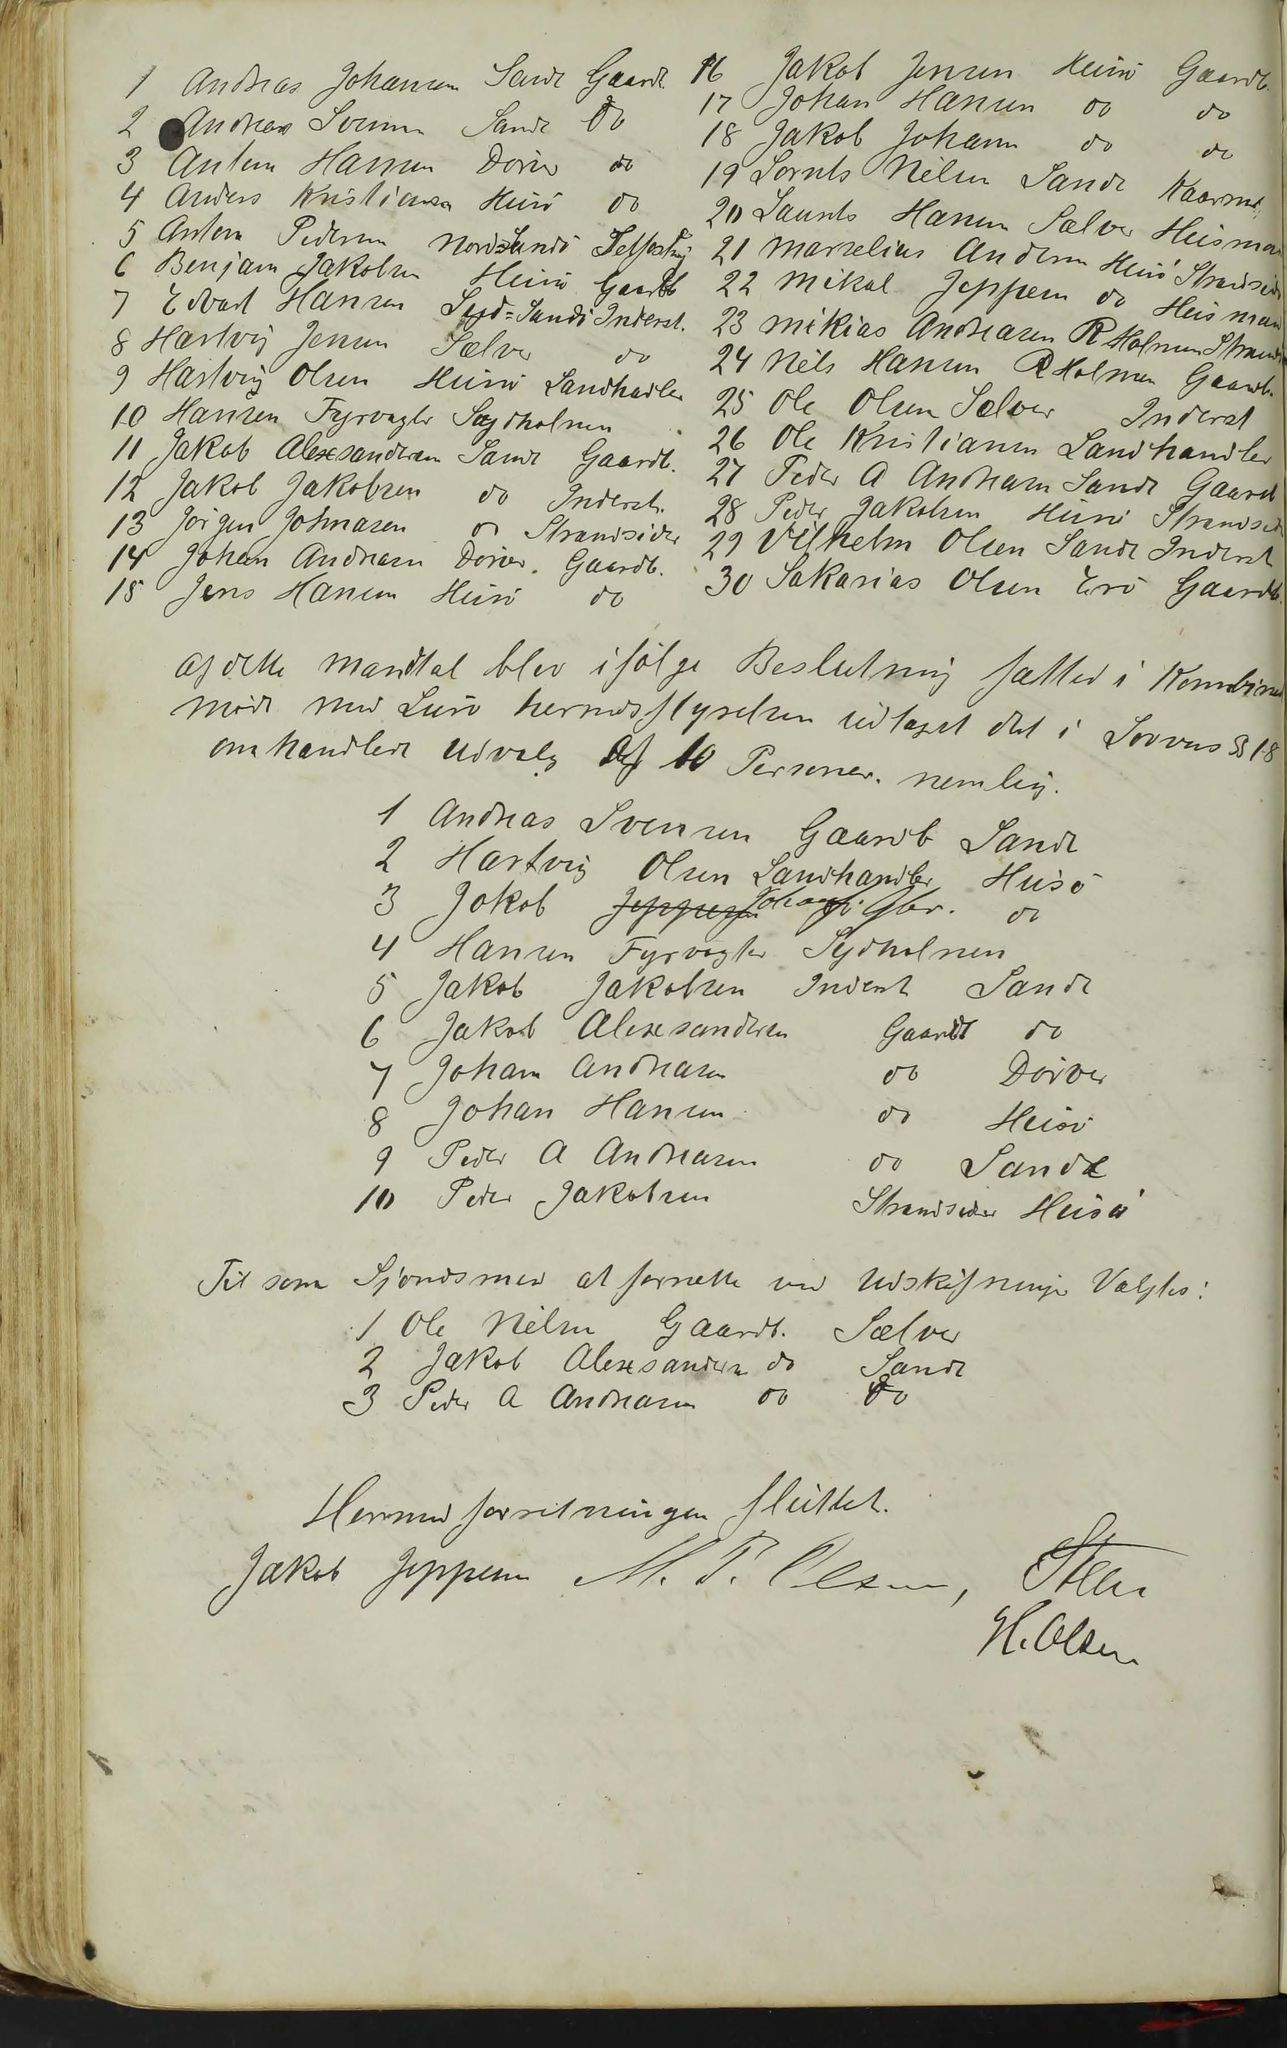 1 Andreas Johansen Sande Gaardb.
2 Andreas Svensen Sande do
3 Anton Hansen Dörver do
4 Anders Kristiansen Husö do
5 Anton Pedersen Nord-Sundö Selfostrig
6 Benjam Jakobsen Husö Gaardb
7 Edvart Hansen Syd-Sundö Inderst.
8 Hartvig Jensen Selver do
9 Hartvig Olsen Husö Landhandler
10 Hansen Fyrvogter Sydholmen
11 Jakob Alexsandersen Sande Gaardb.
12 Jakob Jakobsen do Inderst.
13 Jörgen Johnasen do Strandsider
14 Johan Andreasen Dörver Gaardb.
15 Jens Hansen Husö do
16 Jakob Jensen Husö Gaardb.
17 Johan Hansen do do
18 Jakob Johansen do do
19 Lornts Nilsen Sande Kaarmd.
20 Launts Hansen Selver Husmand
21 Marselius Andersen Husö Strandsider
22 Mikal Jeppesen do Husmand
23 Mikias Andreasen R Holmen Strands
24 Nils Hansen R Holmen Gaardb.
25 Ole Olsen Selver Inderst
26 Ole Kristiansen Landhandler
27 Peder A Andreasen Sande Gaardb
28 Peder Jakobsen Husö Strandsider
29 Vilhelm Olsen Sande Inderst
30 Sakarias Olsen Erö Gaardb.
Af dette Mandtal blev ifölge Beslutning fatted i Kombineret
möde med Lurö herredsstyrelsen udtaget det i Lovens § 18
omhandlede Udvalg af 10 Personer. nemlig.
1 Andreas Svensen Gaardb Sande
2 Hartvig Olsen Landhandler Husö
3 Jakob Jeppesen Johansen Gbr. do
4 Hansen Fyrvogter Sydholmen
5 Jakob Jakobsen Inderst Sande
6 Jakob Alexsandersen Gaardb do
7 Johan Andreasen do Dörver
8 Johan Hansen do Husö
9 Peder A Andreasen do Sande
10 Peder Jakobsen Strandsider Husö
Til som Sjöndsmed at forrette ved Udskiftninge Valgtes:
1 Ole Nilsen Gaardb. Selver
2 Jakob Alexsandersen do Sande
3 Peder A Andreasen do do
Hermed forretningen sluttet.
Jakob Jeppesen M. P. Olsen, Steen
H. Olsen